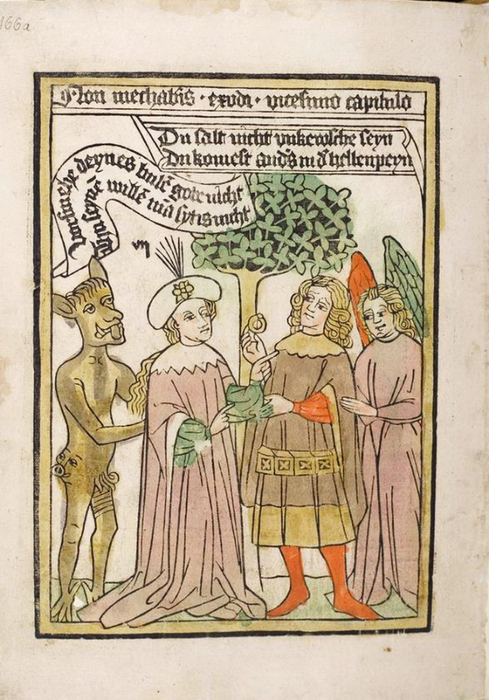 166a
Non mechabis · exodi · vicesimo capitulo
Du salt nicht vnkewsche seyn
Du komest and's in d' hellenpeyn
Vorsmehe deynes bulē gobe nicht
Thu seynē willē mā sytis nicht